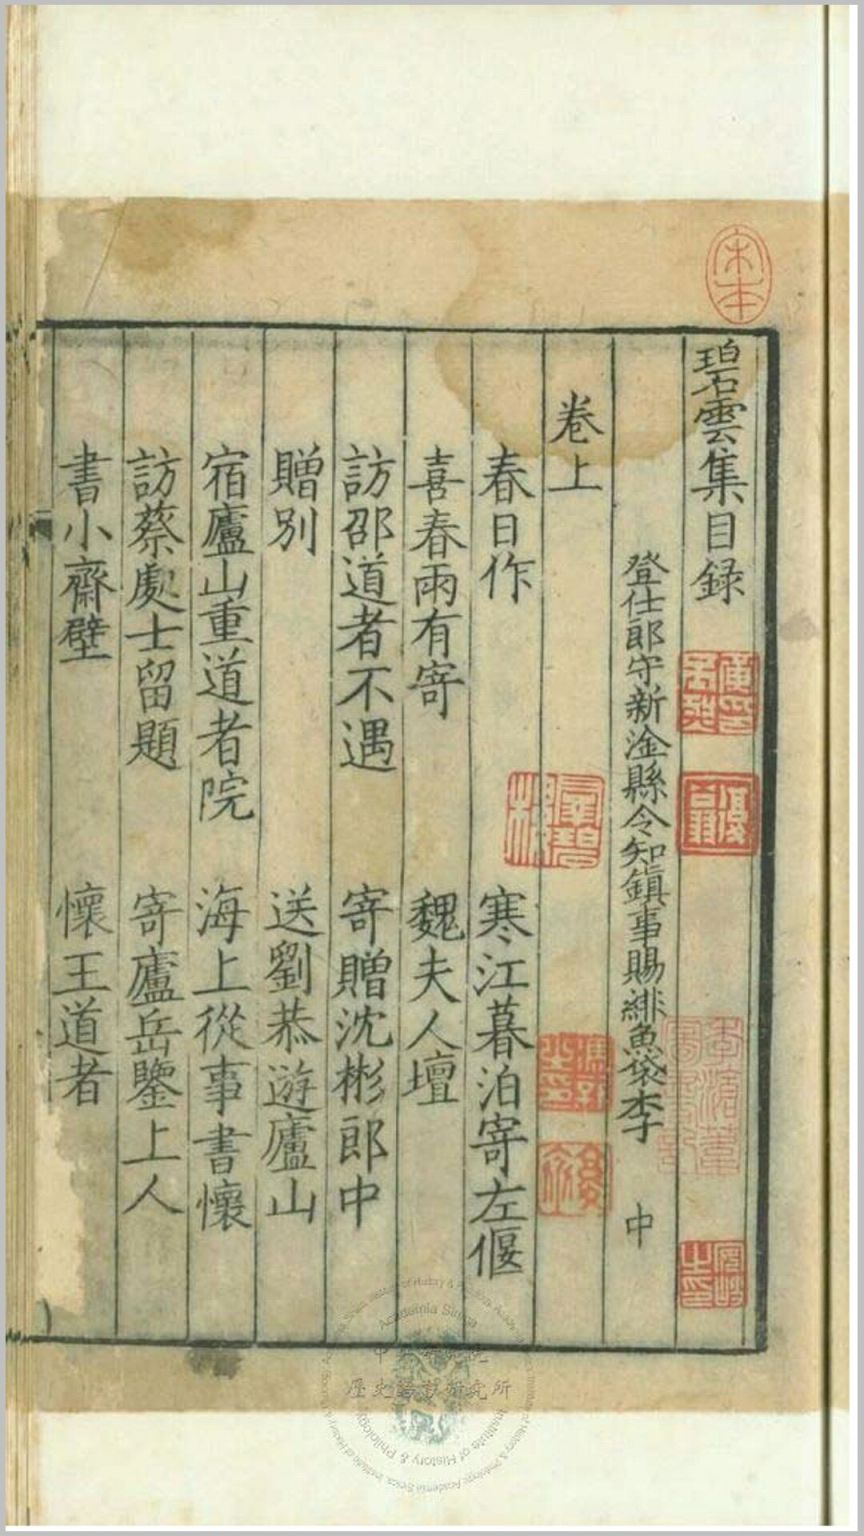 碧雲集目録
登仕郎守新淦縣令知鎮事賜緋魚袋李 中
卷上
春日作 寒江暮泊寄左偃
喜春雨有寄 魏夫人壇
訪邵道者不遇 寄贈沈彬郎中
贈別 送劉恭遊廬山
宿廬山重道者院 海上從事書懷
訪蔡處士留題 寄廬岳鑒上人
書小齋壁 懷王道者
宋本
Academia Sinica
歷史語言研究所
Institute of History & Philology